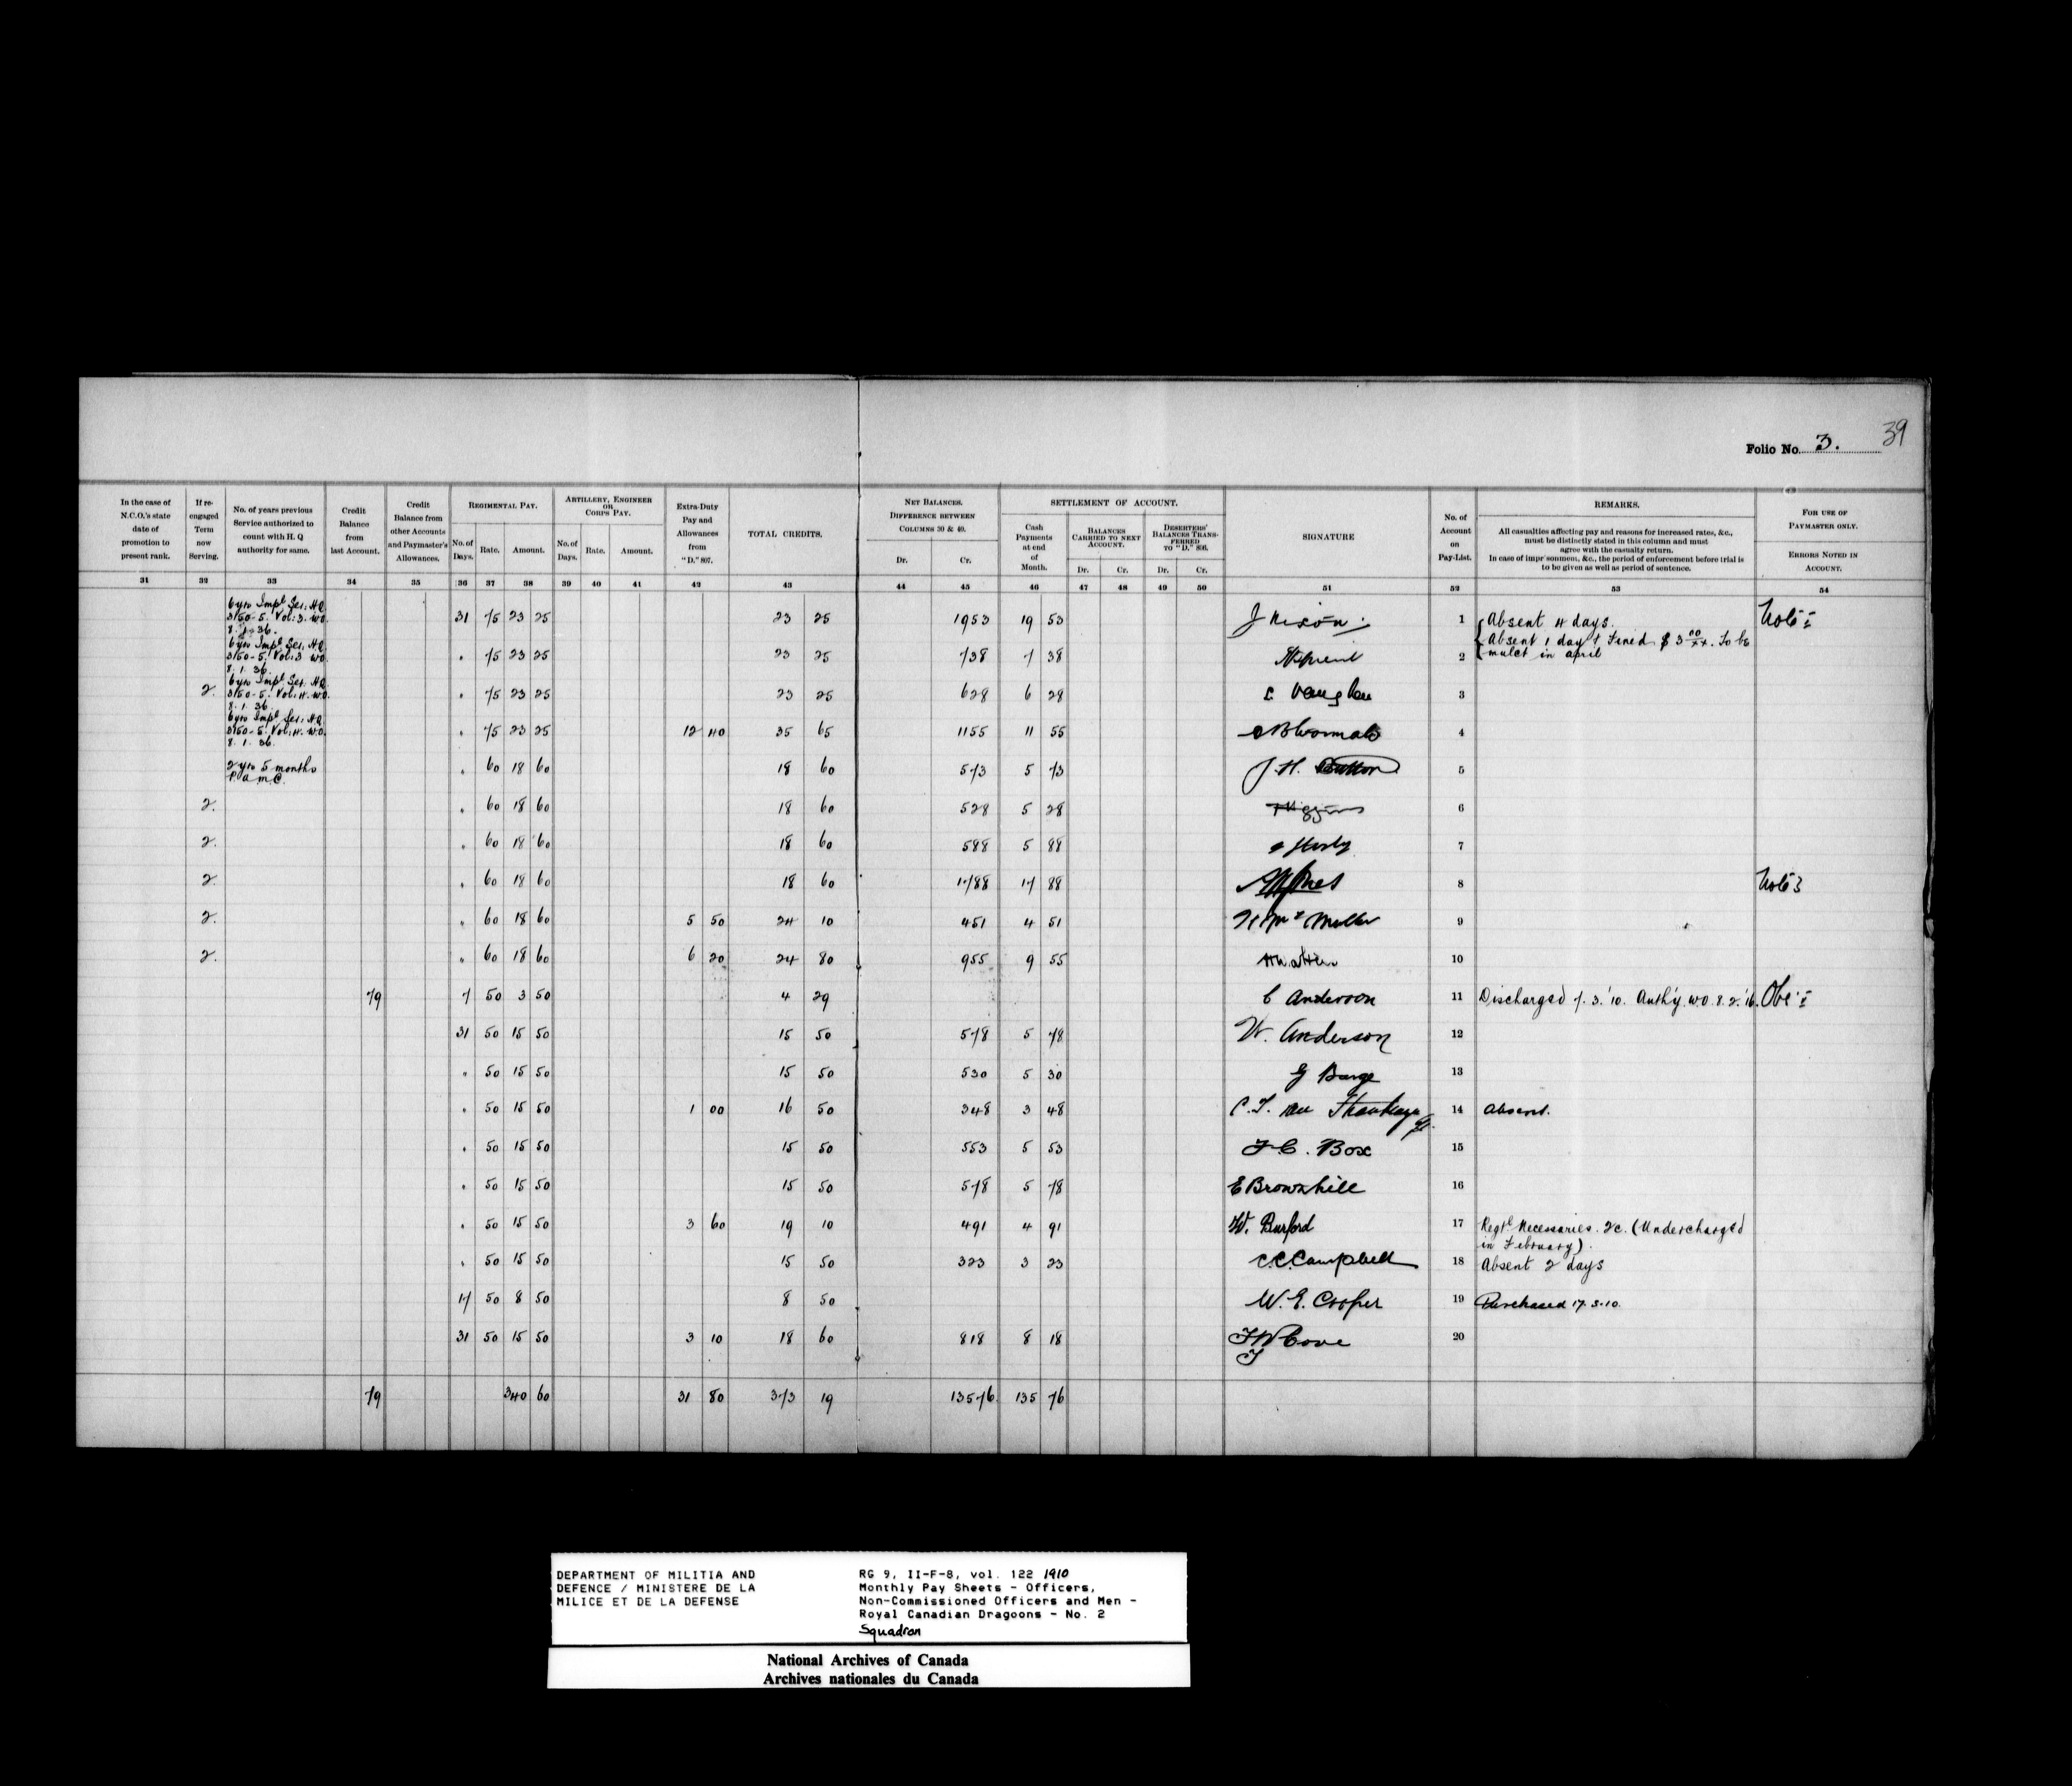 Folio No. 3. 39
In the case of N.C.O.'s state date of promotion to present rank.
If re-engaged Term now Serving.
No. of years previous Service authorized to count with H. Q authority for same.
Credit Balance from last Account.
Credit Balance from other Accounts and Paymaster's Allowances.
REGIMENTAL PAY.
No. of Days. Rate. Amount.
ARTILLERY, ENGINEER OR CORPS PAY.
No. of Days. Rate. Amount.
Extra-Duty Pay and Allowances from "D." 807.
TOTAL CREDITS.
NET BALANCES.
DIFFERENCE BETWEEN COLUMNS 30 & 40.
Dr. Cr.
SETTLEMENT OF ACCOUNT.
Cash Payments at end of Month.
BALANCES CARRIED TO NEXT ACCOUNT.
Dr. Cr.
DESERTERS' BALANCES TRANSFERRED TO "D." 806.
Dr. Cr.
SIGNATURE
No. of Account on Pay-List.
REMARKS.
All casualties affecting pay and reasons for increased rates, &c.,
must be distinctly stated in this column and must
agree with the casualty return.
In case of imprisonment, &c., the period of enforcement before trial is
to be given as well as period of sentence.
FOR USE OF PAYMASTER ONLY.
ERRORS NOTED IN ACCOUNT.
31 32 33 34 35 36 37 38 39 40 41 42 43 44 45 46 47 48 49 50 51 52 53 54
6 yrs Impl Ser: H.Q. 3150-5. Vol: 3. W.O. 8. 1. 36. 31 75 23 25 23 25 19 53 19 53 J Nixon. 1 Absent 4 days. Note I
6 yrs Impl Ser: H.Q. 3150-5. Vol: 3 W.O. 8. 1. 36. " 75 23 25 23 25 7 38 7 38 2 Absent 1 day & Fined $ 3 00/xx. To be mulct in april
2. 6 yrs Impl Ser: H.Q. 3150-5. Vol: 4. W.O. 8. 1. 36. " 75 23 25 23 25 6 28 6 28 Vaughan 3
6 yrs Impl Ser: H.Q. 3150-5. Vol: 4. W.O. 8. 1. 36. " 75 23 25 12 40 35 65 11 55 11 55 4
2 yrs 5 months P.A.M.C. " 60 18 60 18 60 5 73 5 73 J. H. 5
2. " 60 18 60 18 60 5 28 5 28 Higgins 6
2. " 60 18 60 18 60 5 88 5 88 7
2. " 60 18 60 18 60 17 88 17 88 8 Note 3
2. " 60 18 60 5 50 24 10 4 51 4 51 9
2. " 60 18 60 6 20 24 80 9 55 9 55 10
79 7 50 3 50 4 29 C Anderson 11 Discharged 7. 3. '10. Auth'y. W.O. 8. 2. '10. Obs. I
31 50 15 50 15 50 5 78 5 78 W. Anderson 12
" 50 15 50 15 50 5 30 5 30 G Barge 13
" 50 15 50 1 00 16 50 3 48 3 48 14 Absent.
" 50 15 50 15 50 5 53 5 53 F. C. Box 15
" 50 15 50 15 50 5 78 5 78 E Brownhill 16
" 50 15 50 3 60 19 10 4 91 4 91 W. Burford 17 Regtl Necessaries. &c. (Undercharged in February).
" 50 15 50 15 50 3 23 3 23 C.C. Campbell 18 Absent 2 days
17 50 8 50 8 50 W. E. Cooper 19 Purchased 17. 3. 10.
31 50 15 50 3 10 18 60 8 18 8 18 F W Cove 20
79 340 60 31 80 373 19 135 76 135 76
DEPARTMENT OF MILITIA AND
DEFENCE / MINISTERE DE LA
MILICE ET DE LA DEFENSE
RG 9, II-F-8, vol. 122 1910
Monthly Pay Sheets - Officers,
Non-Commissioned Officers and Men -
Royal Canadian Dragoons - No. 2
Squadron
National Archives of Canada
Archives nationales du Canada